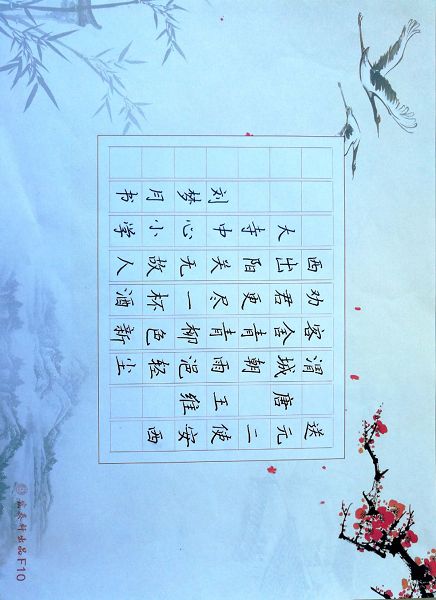 送元二使安西
唐 王维
渭城朝雨浥轻尘
客舍青青柳色新
劝君更尽一杯酒
西出阳关无故人
大寺中心小学
刘梦月书
春轩出品F10